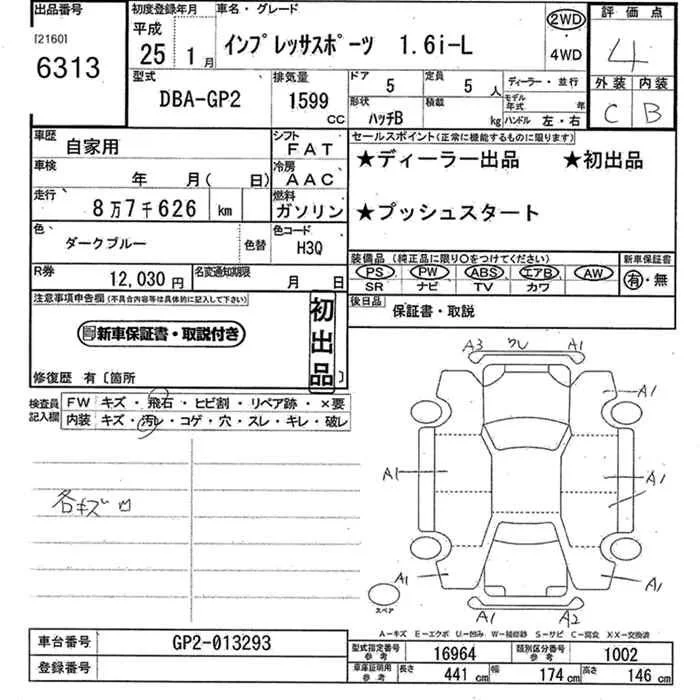 出品番号 初度登録年月 車名・グレード 評価点
[2160] 平成 2WD
6313 25 1月 インプレッサスポーツ 1.6i-L ・ 4
4WD
型式 排気量 ドア 定員 ディーラー・並行 外装 内装
DBA-GP2 1599 CC 5 5人 モデル年式 年 C B
形状 積載
ハッチB kg ハンドル 左・右
車歴 自家用 シフト FAT セールスポイント(正常に機能するものに限ります)
車検 年 月( 日) 冷房 AAC ★ディーラー出品 ★初出品
走行 8万7千626 km 燃料 ガソリン ★プッシュスタート
色 ダークブルー 色替 色コード H3Q
装備品(純正品に限り○をつけてください) 新車保証書
PS PW ABS エアB AW 有・無
SR ナビ TV カワ
R券 12,030円 名変通知期限 月 日
後日品 保証書・取説
注意事項申告欄(不具合内容等は具体的に記入して下さい)
新車保証書・取説付き
初出品
修復歴 有〔箇所 〕
検査員記入欄 FW キズ・飛石・ヒビ割・リペア跡・×要
内装 キズ・汚レ・コゲ・穴・スレ・キレ・破レ
各キズ凹
A3 ワレ A1
A1
A1 A1
A1
A1 A1
A1 A2
スペア
A－キズ E－エクボ U－凹み W－補修跡 S－サビ C－腐食 XX－交換済
車台番号 GP2-013293
登録番号
型式指定番号 参考 16964 類別区分番号 参考 1002
車庫証明用 参考 長さ 441 cm 幅 174 cm 高さ 146 cm